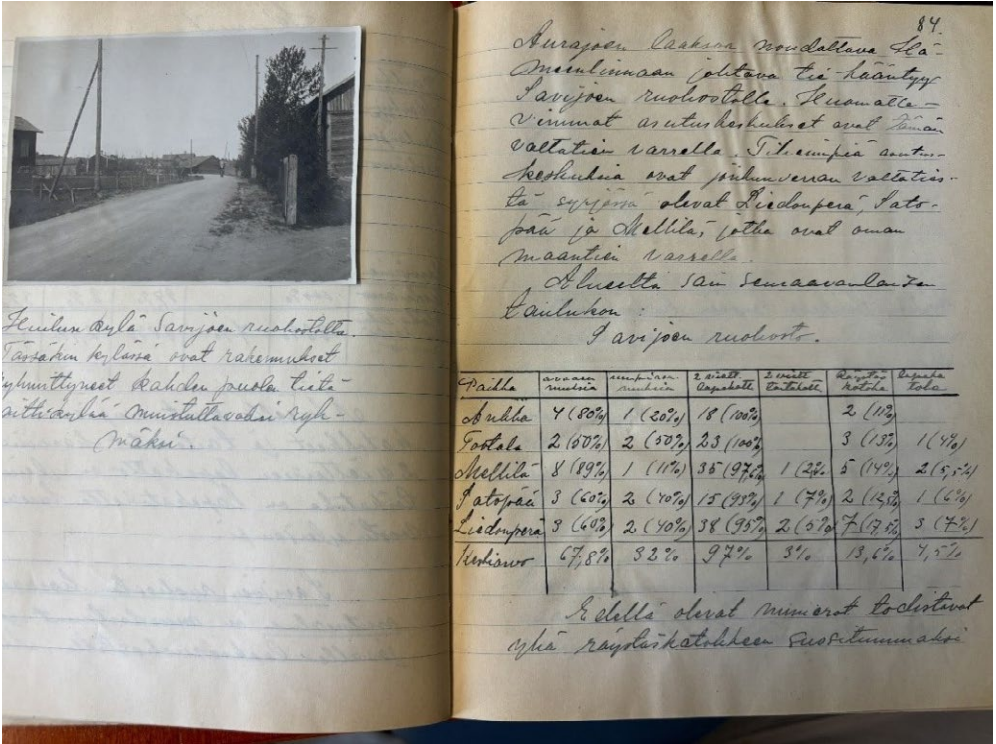 Hinlun kylä Savijoen ruohostolla.
Tässäkin kylässä ovat rakennukset
ryhmittyneet kahden puolen tietä
raittikylää muistuttavaksi ryh-
mäksi.
84.
Aurajoen laaksoa noudattava Hä-
meenlinnaan johtava tie kääntyy
Savijoen ruohostolla. Huomatta-
vimmat asutuskeskukset ovat tämän
valtatien varrella. Tiheimpiä asutus-
keskuksia ovat jonkunverran valtaties-
tä syrjässä olevat Liedonperä, Sato-
pää ja Mellilä, jotka ovat oman
maantien varrella.
Alueelta sain seuraavanlaisen
taulukon :
Savijoen ruohosto.
Paikka avosim muksia umpinon muksia 2 viett. lapekatt 2 viett taitekatt Räystä kotoha
Ankka 4 (80%) 1 (20%) 18 (100%) 2 (11%)
Tortala 2 (50%) 2 (50%) 23 (100%) 3 (13%) 1 (4%)
Mellilä 8 (89%) 1 (11%) 35 (97,6%) 1 (2%) 5 (14%) 2 (5,5%)
Satopää 3 (60%) 2 (40%) 15 (93%) 1 (7%) 2 (12,5%) 1 (6%)
Liedonperä 3 (60%) 2 (40%) 38 (95%) 2 (5%) 7 (17,5%) 3 (7%)
Keskiarvo 67,8% 32% 97% 3% 13,6% 4,5%
Edellä olevat numerot todistavat
yhä räystäskatokkeen suosituimmaksi